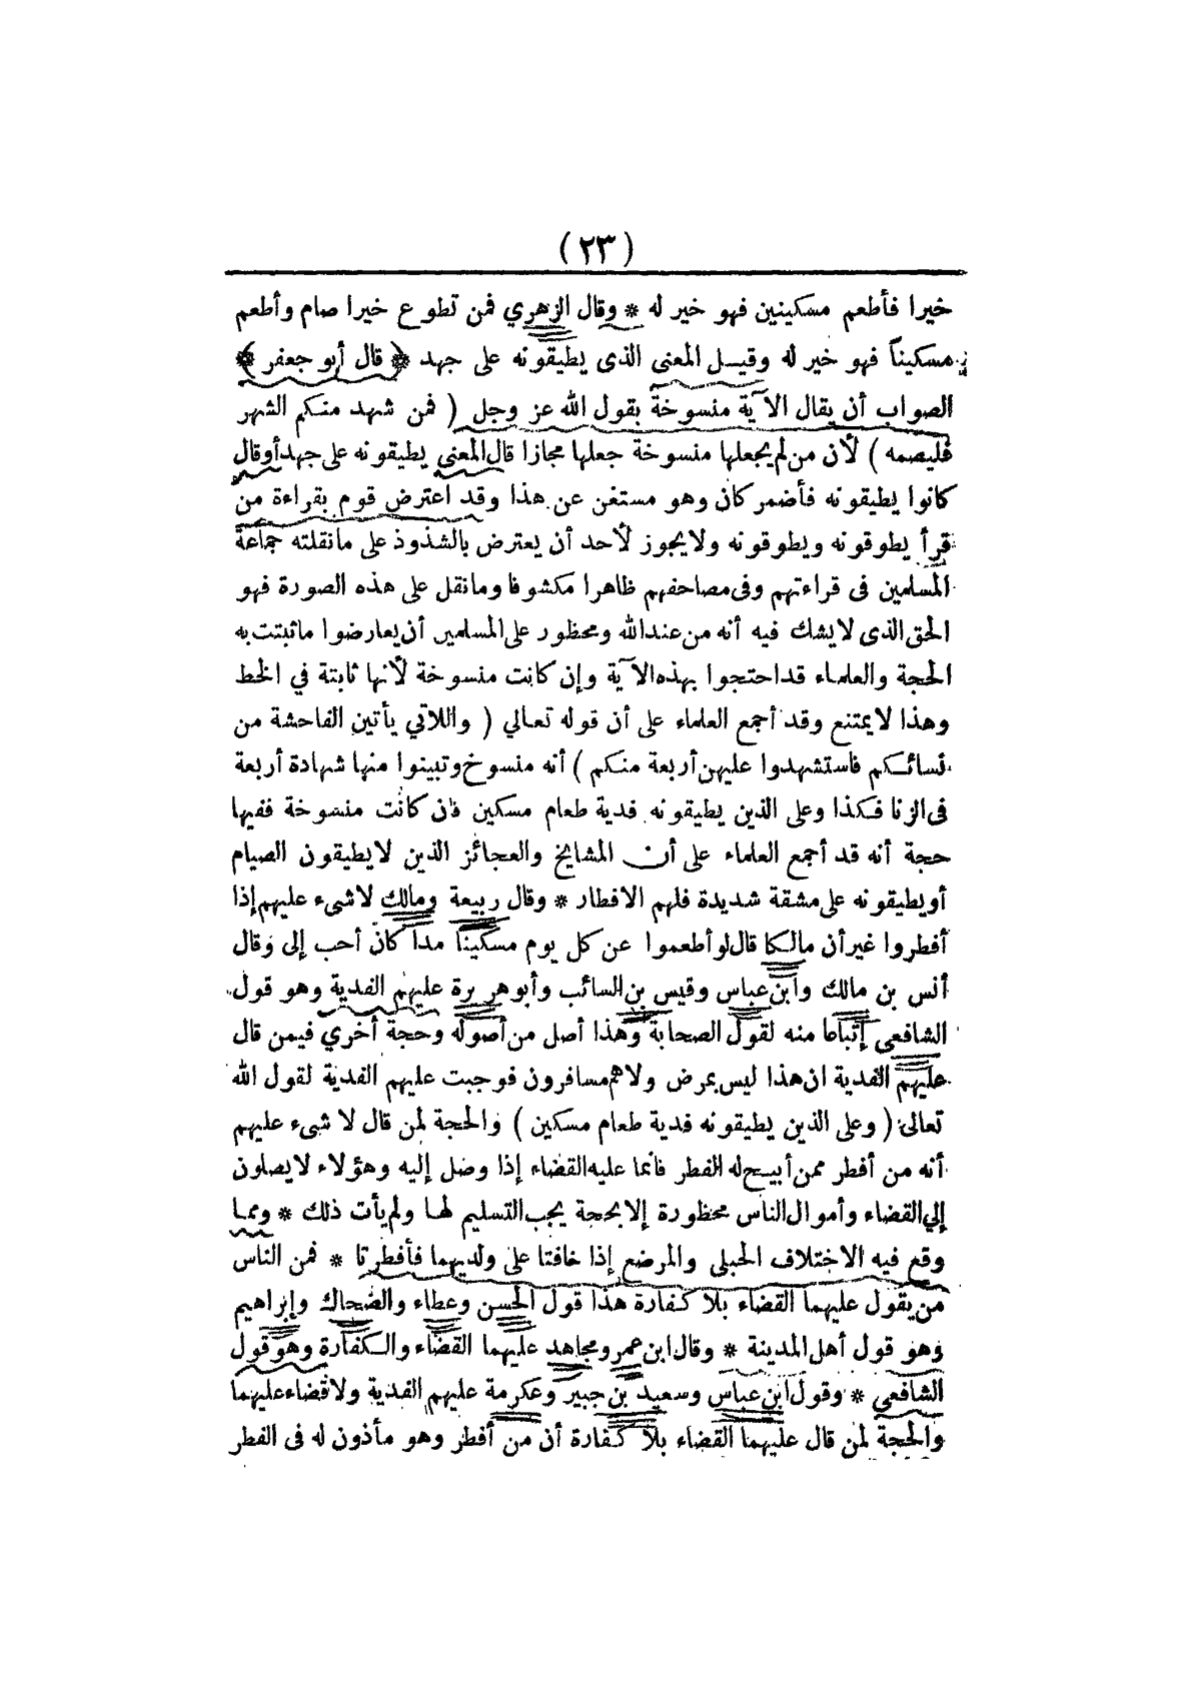 ( ٢٣ )
خيرا فأطعم مسكينين فهو خير له * وقال الزهري فمن تطوع خيرا صام وأطعم
مسكيناً فهو خير له وقيل المعنى الذى يطيقونه على جهد ﴿ * قال أبو جعفر * ﴾
الصواب أن يقال الآية منسوخة بقول الله عز وجل ( فمن شهد منكم الشهر
فليصمه ) لأن من لم يجعلها منسوخة جعلها مجازا قال المعنى يطيقونه على جهد أوقال
كانوا يطيقونه فأضمر كان وهو مستغن عن هذا وقد اعترض قوم بقراءة من
قرأ يطوقونه ويطوقونه ولايجوز لأحد أن يعترض بالشذوذ على مانقلته جماعة
المسلمين فى قراءتهم وفى مصاحفهم ظاهرا مكشوفا ومانقل على هذه الصورة فهو
الحق الذى لايشك فيه أنه من عندالله ومحظور على المسلمين أن يعارضوا ماثبتت به
الحجة والعلماء قد احتجوا بهذه الآية وإن كانت منسوخة لأنها ثابتة في الخط
وهذا لايمتنع وقد أجمع العلماء على أن قوله تعالي ( واللاتي يأتين الفاحشة من
نسائكم فاستشهدوا عليهن أربعة منكم ) أنه منسوخ وتبينوا منها شهادة أربعة
فى الزنا فكذا وعلى الذين يطيقونه فدية طعام مسكين فان كانت منسوخة ففيها
حجة أنه قد أجمع العلماء على أن المشايخ والعجائز الذين لايطيقون الصيام
أويطيقونه على مشقة شديدة فلهم الافطار * وقال ربيعة ومالك لاشىء عليهم إذا
أفطروا غير أن مالكا قال لو أطعموا عن كل يوم مسكيناً مدا كان أحب إلى وقال
أنس بن مالك وابن عباس وقيس بن السائب وأبوهريرة عليهم الفدية وهو قول
الشافعى إتباعا منه لقول الصحابة وهذا أصل من أصوله وحجة أخري فيمن قال
عليهم الفدية ان هذا ليس بمرض ولاهم مسافرون فوجبت عليهم الفدية لقول الله
تعالى ( وعلى الذين يطيقونه فدية طعام مسكين ) والحجة لمن قال لا شىء عليهم
أنه من أفطر ممن أبيح له الفطر فانما عليه القضاء إذا وصل إليه وهؤلاء لايصلون
إلي القضاء وأموال الناس محظورة إلا بحجة يجب التسليم لها ولم يأت ذلك * ومما
وقع فيه الاختلاف الحبلى والمرضع إذا خافتا على ولديهما فأفطرتا * فمن الناس
من يقول عليهما القضاء بلا كفارة هذا قول الحسن وعطاء والضحاك وإبراهيم
وهو قول أهل المدينة * وقال ابن عمر ومجاهد عليهما القضاء والكفارة وهو قول
الشافعى * وقول ابن عباس وسعيد بن جبير وعكرمة عليهم الفدية ولاقضاء عليهما
والحجة لمن قال عليهما القضاء بلا كفارة أن من أفطر وهو مأذون له فى الفطر